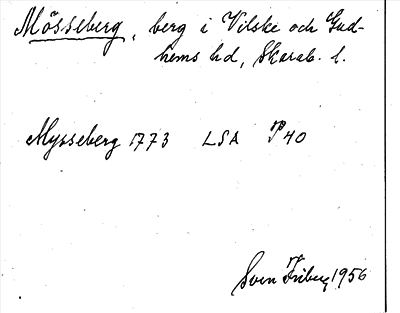 Mösseberg, berg i Vilske och Gud-
hems hd, Skarab. l.
Mysseberg 1773 LSA P40
Sven Friberg 1956